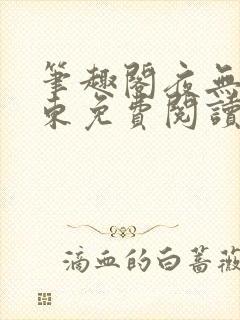 筆趣閣夜無
東免費閱讀
滴血的白薔薇